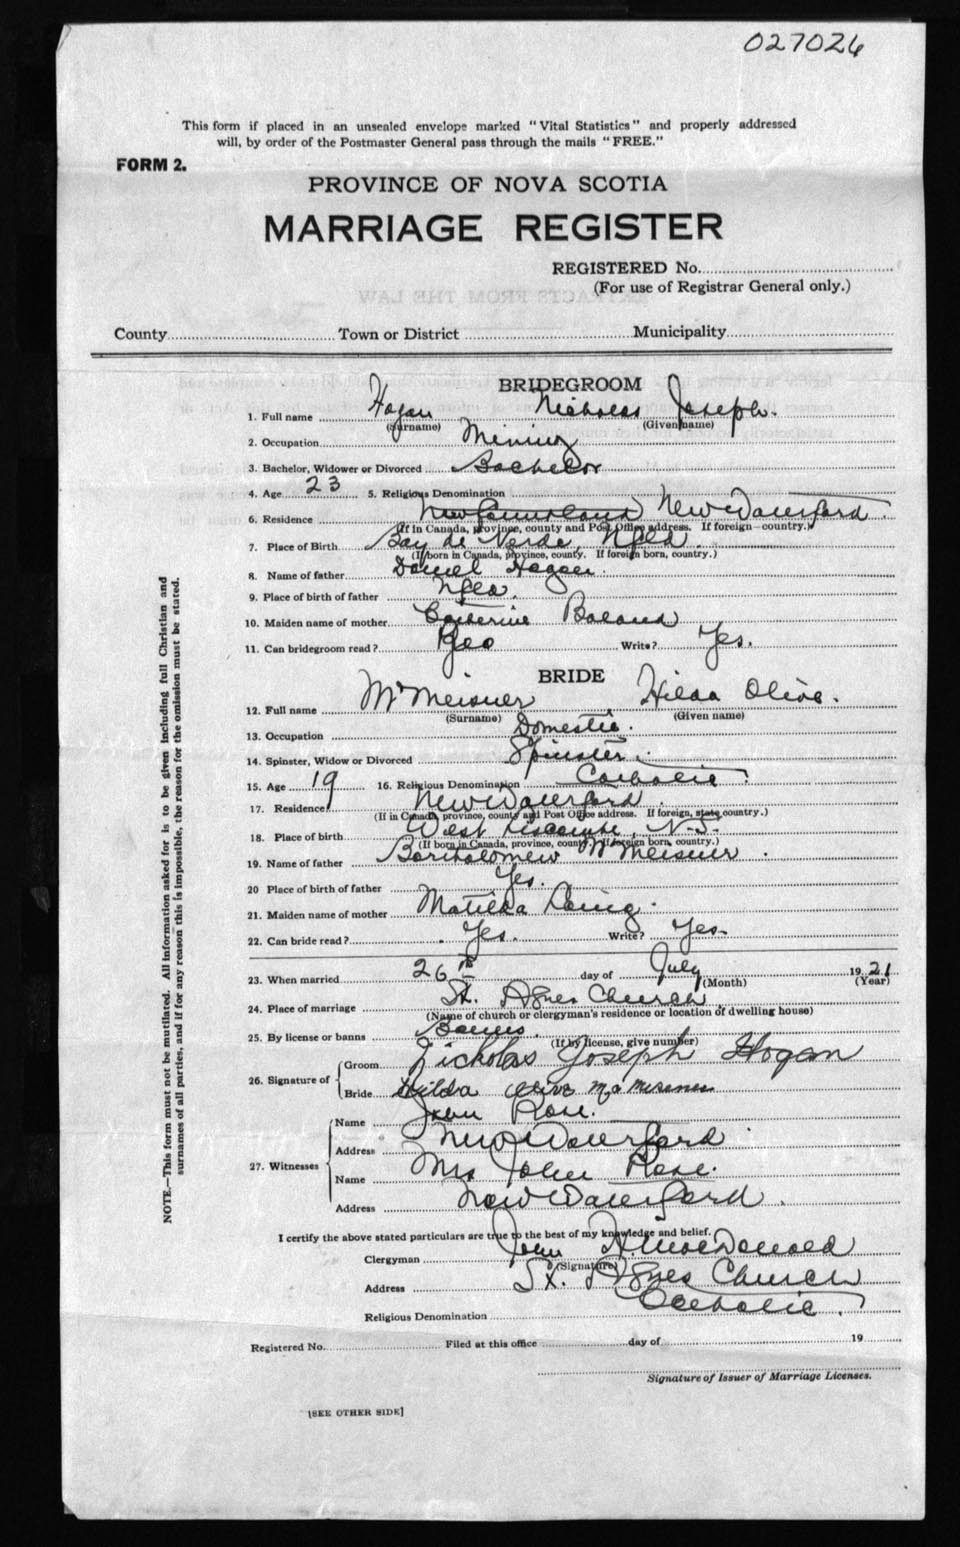 027026
This form if placed in an unsealed envelope marked "Vital Statistics" and properly addressed
will, by order of the Postmaster General pass through the mails "FREE."
FORM 2.
PROVINCE OF NOVA SCOTIA
MARRIAGE REGISTER
REGISTERED No.
(For use of Registrar General only.)
County Town or District Municipality
BRIDEGROOM
1. Full name Hogan Nicholas Joseph.
(Surname) (Given name)
2. Occupation Mining
3. Bachelor, Widower or Divorced Bachelor
4. Age 23 5. Religious Denomination
6. Residence Newfoundland New Waterford.
(If in Canada, province, county and Post Office address. If foreign—country.)
7. Place of Birth Bay de Verde, Nfld.
(If born in Canada, province, county. If foreign born, country.)
8. Name of father Daniel Hogan.
9. Place of birth of father Nfld.
10. Maiden name of mother Catherine Boland
11. Can bridegroom read? Yes Write? Yes.
BRIDE
12. Full name McMeisner Hilda Olive.
(Surname) (Given name)
13. Occupation Domestic.
14. Spinster, Widow or Divorced Spinster.
15. Age 19 16. Religious Denomination Catholic.
17. Residence New Waterford.
(If in Canada, province, county and Post Office address. If foreign, state country.)
18. Place of birth West Liscombe, N.S.
(If born in Canada, province, county. If foreign born, country.)
19. Name of father Bartholomew McMeisner.
20 Place of birth of father Yes.
21. Maiden name of mother Matilda
22. Can bride read? Yes. Write? Yes
23. When married 26th day of July 1921
(Month) (Year)
24. Place of marriage St. Agnes Church
(Name of church or clergyman's residence or location of dwelling house)
25. By license or banns Banns.
(If by license, give number)
26. Signature of Groom Nicholas Joseph Hogan
Bride Hilda Olive
27. Witnesses Name John Rose.
Address New Waterford.
Name Mrs John Rose.
Address New Waterford.
I certify the above stated particulars are true to the best of my knowledge and belief.
Clergyman John H. MacDonald
(Signature)
Address St. Agnes Church
Religious Denomination Catholic.
Registered No. Filed at this office day of 19
Signature of Issuer of Marriage Licenses.
[SEE OTHER SIDE]
NOTE.—This form must not be mutilated. All information asked for is to be given including full Christian and
surnames of all parties, and if for any reason this is impossible, the reason for the omission must be stated.